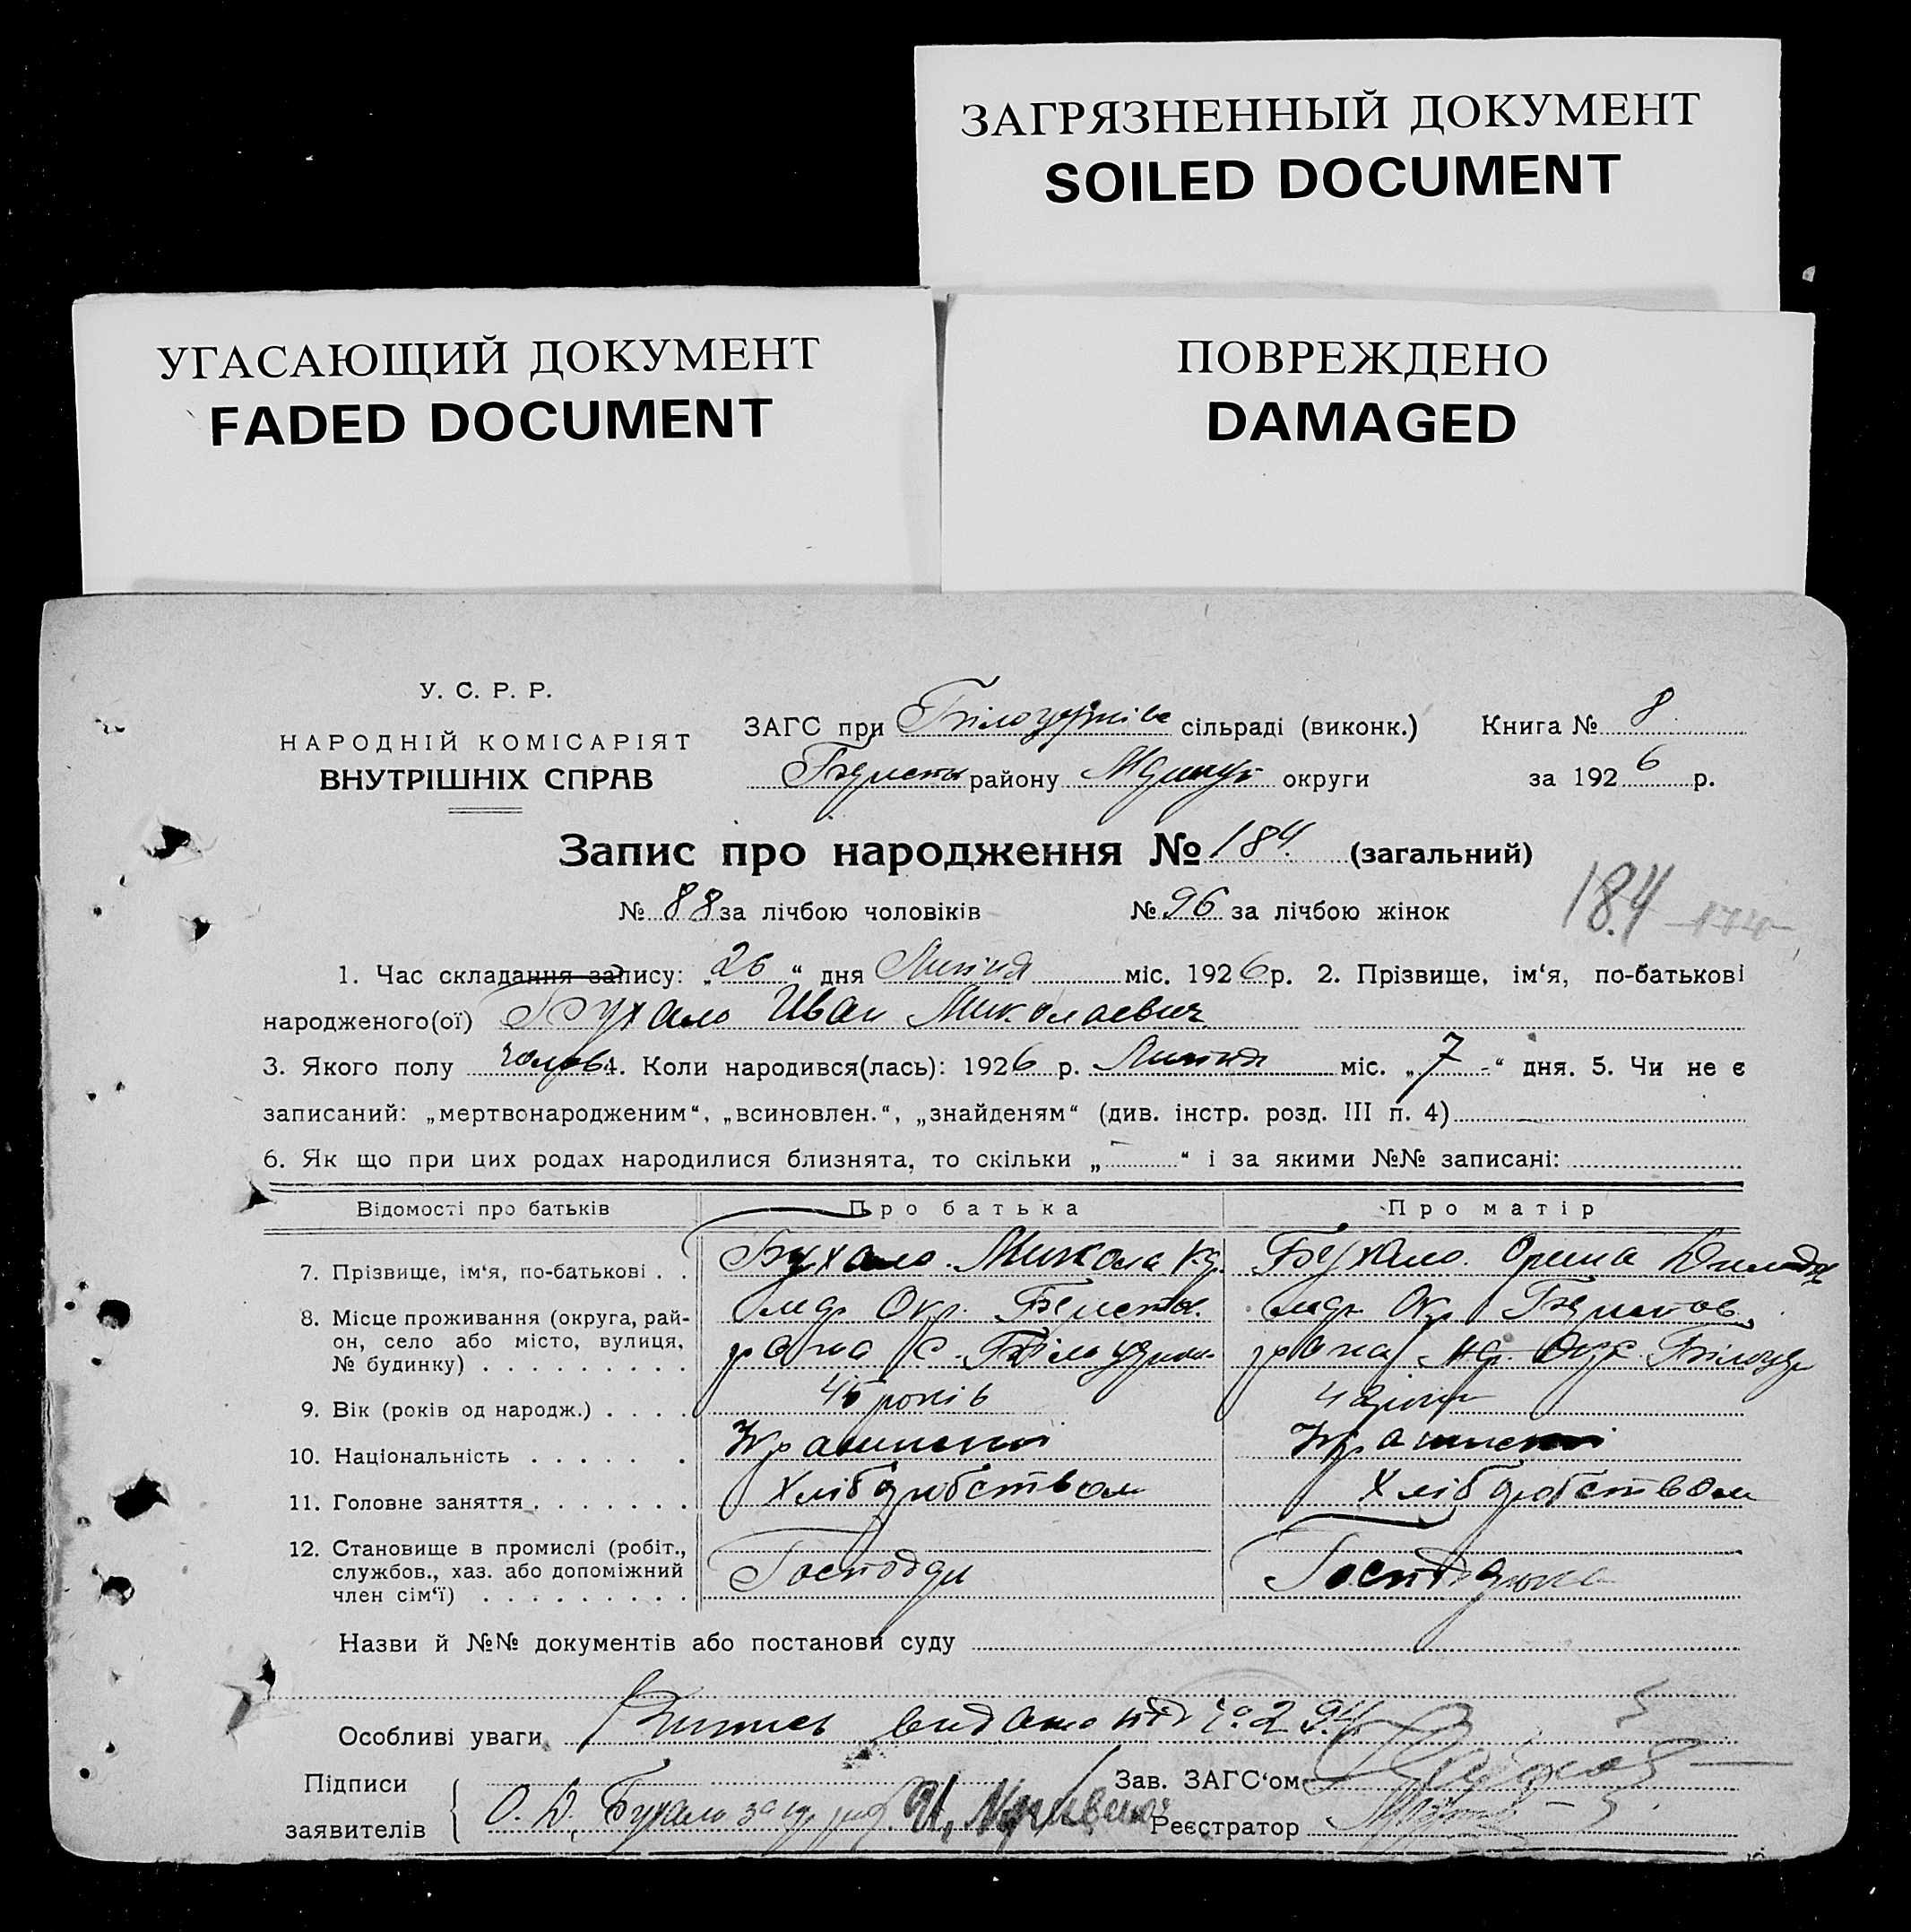 ЗАГРЯЗНЕННЫЙ ДОКУМЕНТ
SOILED DOCUMENT
УГАСАЮЩИЙ ДОКУМЕНТ
FADED DOCUMENT
ПОВРЕЖДЕНО
DAMAGED
У. С. Р. Р.
НАРОДНІЙ КОМІСАРІЯТ
ВНУТРІШНІХ СПРАВ
ЗАГС при сільраді (виконк.) Книга № 8
району округи за 1926 р.
Запис про народження № 184. (загальний)
№ 88 за лічбою чоловіків № 96 за лічбою жінок 184
1. Час складання запису: „26“ дня Липня міс. 1926 р. 2. Прізвище, ім‘я, по-батькові
народженого(ої) Бухало Иван Миколаевич
3. Якого полу 4. Коли народився(лась): 1926 р. Липня міс. „7“ дня. 5. Чи не є
записаний: „мертвонародженим“, „всиновлен.“, „знайденям“ (див. інстр. розд. III п. 4)
6. Як що при цих родах народилися близнята, то скільки „-“ і за якими №№ записані:
Відомості про батьків Про батька Про матір
7. Прізвище, ім‘я, по-батькові . . Бухало Микола Бухало Орина
8. Місце проживання (округа, рай-
он, село або місто, вулиця,
№ будинку) . . . . . . . . .
9. Вік (років од народж.) . . . . 45 років
10. Національність . . . . . .
11. Головне заняття . . . . . . . Хліборобством Хліборобством
12. Становище в промислі (робіт.,
службов., хаз. або допоміжний
член сім‘ї) . . . . . . . . .
Назви й №№ документів або постанови суду
Особливі уваги Випись видано під № 294
Підписи Зав. ЗАГС‘ом
заявителів О. Д. Бухало Реєстратор